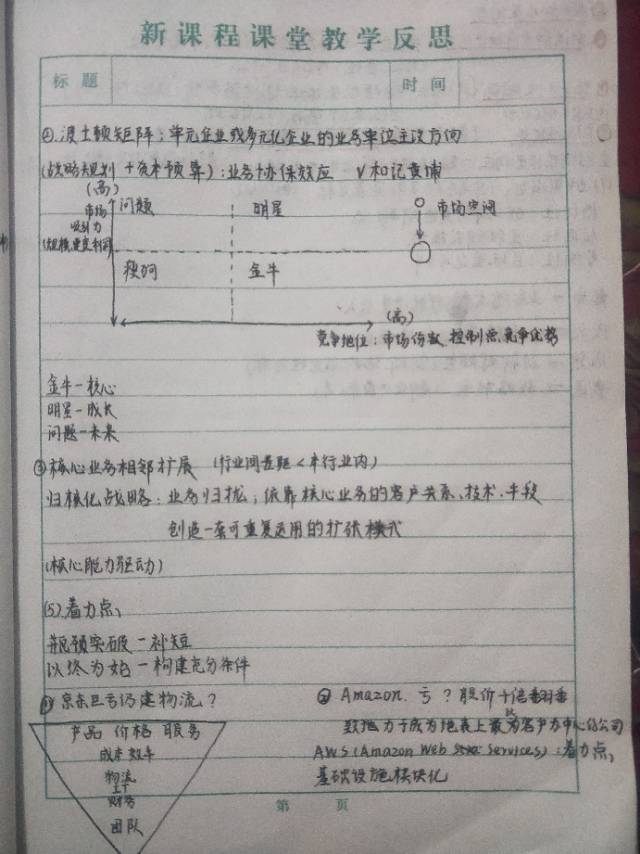 新课程课堂教学反思
标题 时间
④.波士顿矩阵：单元企业或多元化企业的业务单位主设方向
(战略规划+资本预算)：业务协保效应 V和记黄埔
(高)
市场吸引力 问题 明星 市场空间
(规模、速度、利润)
瘦狗 金牛
(高)
竞争地位：市场份额、控制点、竞争优势
金牛-核心
明星-成长
问题-未来
③核心业务相邻扩展 (行业间差距<本行业内)
归核化战略：业务归拢；依靠核心业务的客户关系、技术、手段
创造一套可重复运用的扩张模式
(核心能力驱动)
(5)着力点、
瓶颈突破-补短
以终为始-构建充分条件
①京东巨亏仍建物流？ ② Amazon. 亏？股价十倍翻番
产品 价格 服务 致力于成为地表上最以客户为中心的公司
成本 效率 AWS(Amazon Web Services)：着力点、
物流 基础设施模块化
IT
财务
团队
第 页